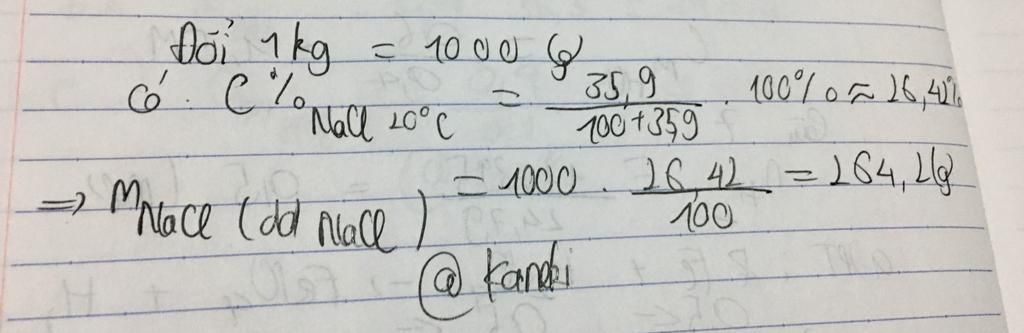 Đổi 1 kg = 1000 (g)
Có. C%NaCl 20°C = 35,9 / 100+35,9 . 100% ≈ 26,42%
=> mNaCl (dd NaCl) = 1000 . 26,42 / 100 = 264,2(g)
@ Kaneki